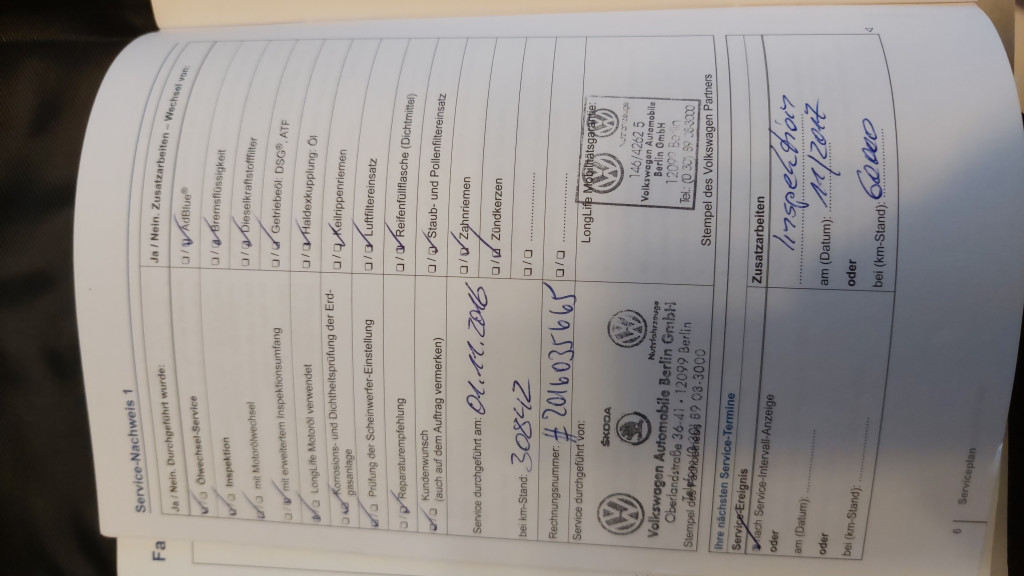 Fa
Service-Nachweis 1
Ja / Nein. Durchgeführt wurde:
Ölwechsel-Service
Inspektion
mit Motorölwechsel
mit erweitertem Inspektionsumfang
LongLife Motoröl verwendet
Korrosions- und Dichtheitsprüfung der Erd-
gasanlage
Prüfung der Scheinwerfer-Einstellung
Reparaturempfehlung
Kundenwunsch
(auch auf dem Auftrag vermerken)
Service durchgeführt am: 01.11.2016
bei km-Stand: 30842
Rechnungsnummer: # 2016035665
Service durchgeführt von:
ŠKODA
Nutzfahrzeuge
Volkswagen Automobile Berlin GmbH
Oberlandstraße 36-41 · 12099 Berlin
Stempel des
Ja / Nein. Zusatzarbeiten – Wechsel von:
AdBlue®
Bremsflüssigkeit
Dieselkraftstofffilter
Getriebeöl DSG®, ATF
Haldexkupplung: Öl
Keilrippenriemen
Luftfiltereinsatz
Reifenfüllflasche (Dichtmittel)
Staub- und Pollenfiltereinsatz
Zahnriemen
Zündkerzen
LongLife Mobilitätsgarantie:
146/4262 5
Volkswagen Automobile
Berlin GmbH
12099 Berlin
Stempel des Volkswagen Partners
Ihre nächsten Service-Termine
Service-Ereignis
nach Service-Intervall-Anzeige
oder
am (Datum):
oder
bei (km-Stand):
Zusatzarbeiten
Inspektion
am (Datum): 11/2017
oder
bei (km-Stand): 60000
6
Serviceplan